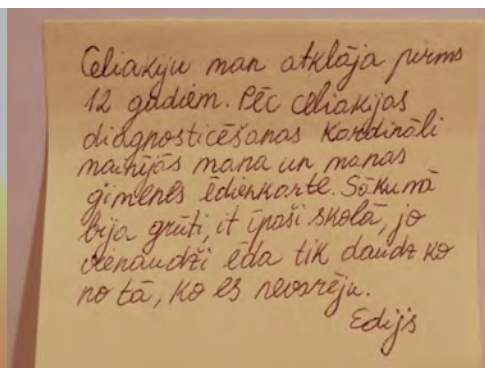 Celiakiju man atklāja pirms
12 gadiem. Pēc celiakijas
diagnosticēšanas kardināli
mainījās mana un manas
ģimenes ēdienkarte. Sākumā
bija grūti, it īpaši skolā, jo
vienaudži ēda tik daudz ko
no tā, ko es nevarēju.
Edijs